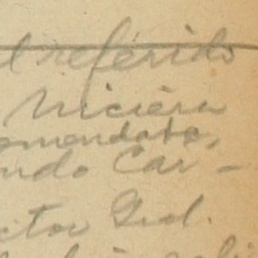 el referido
hiciera
omendato,
ndo Car-
ctor Gral.